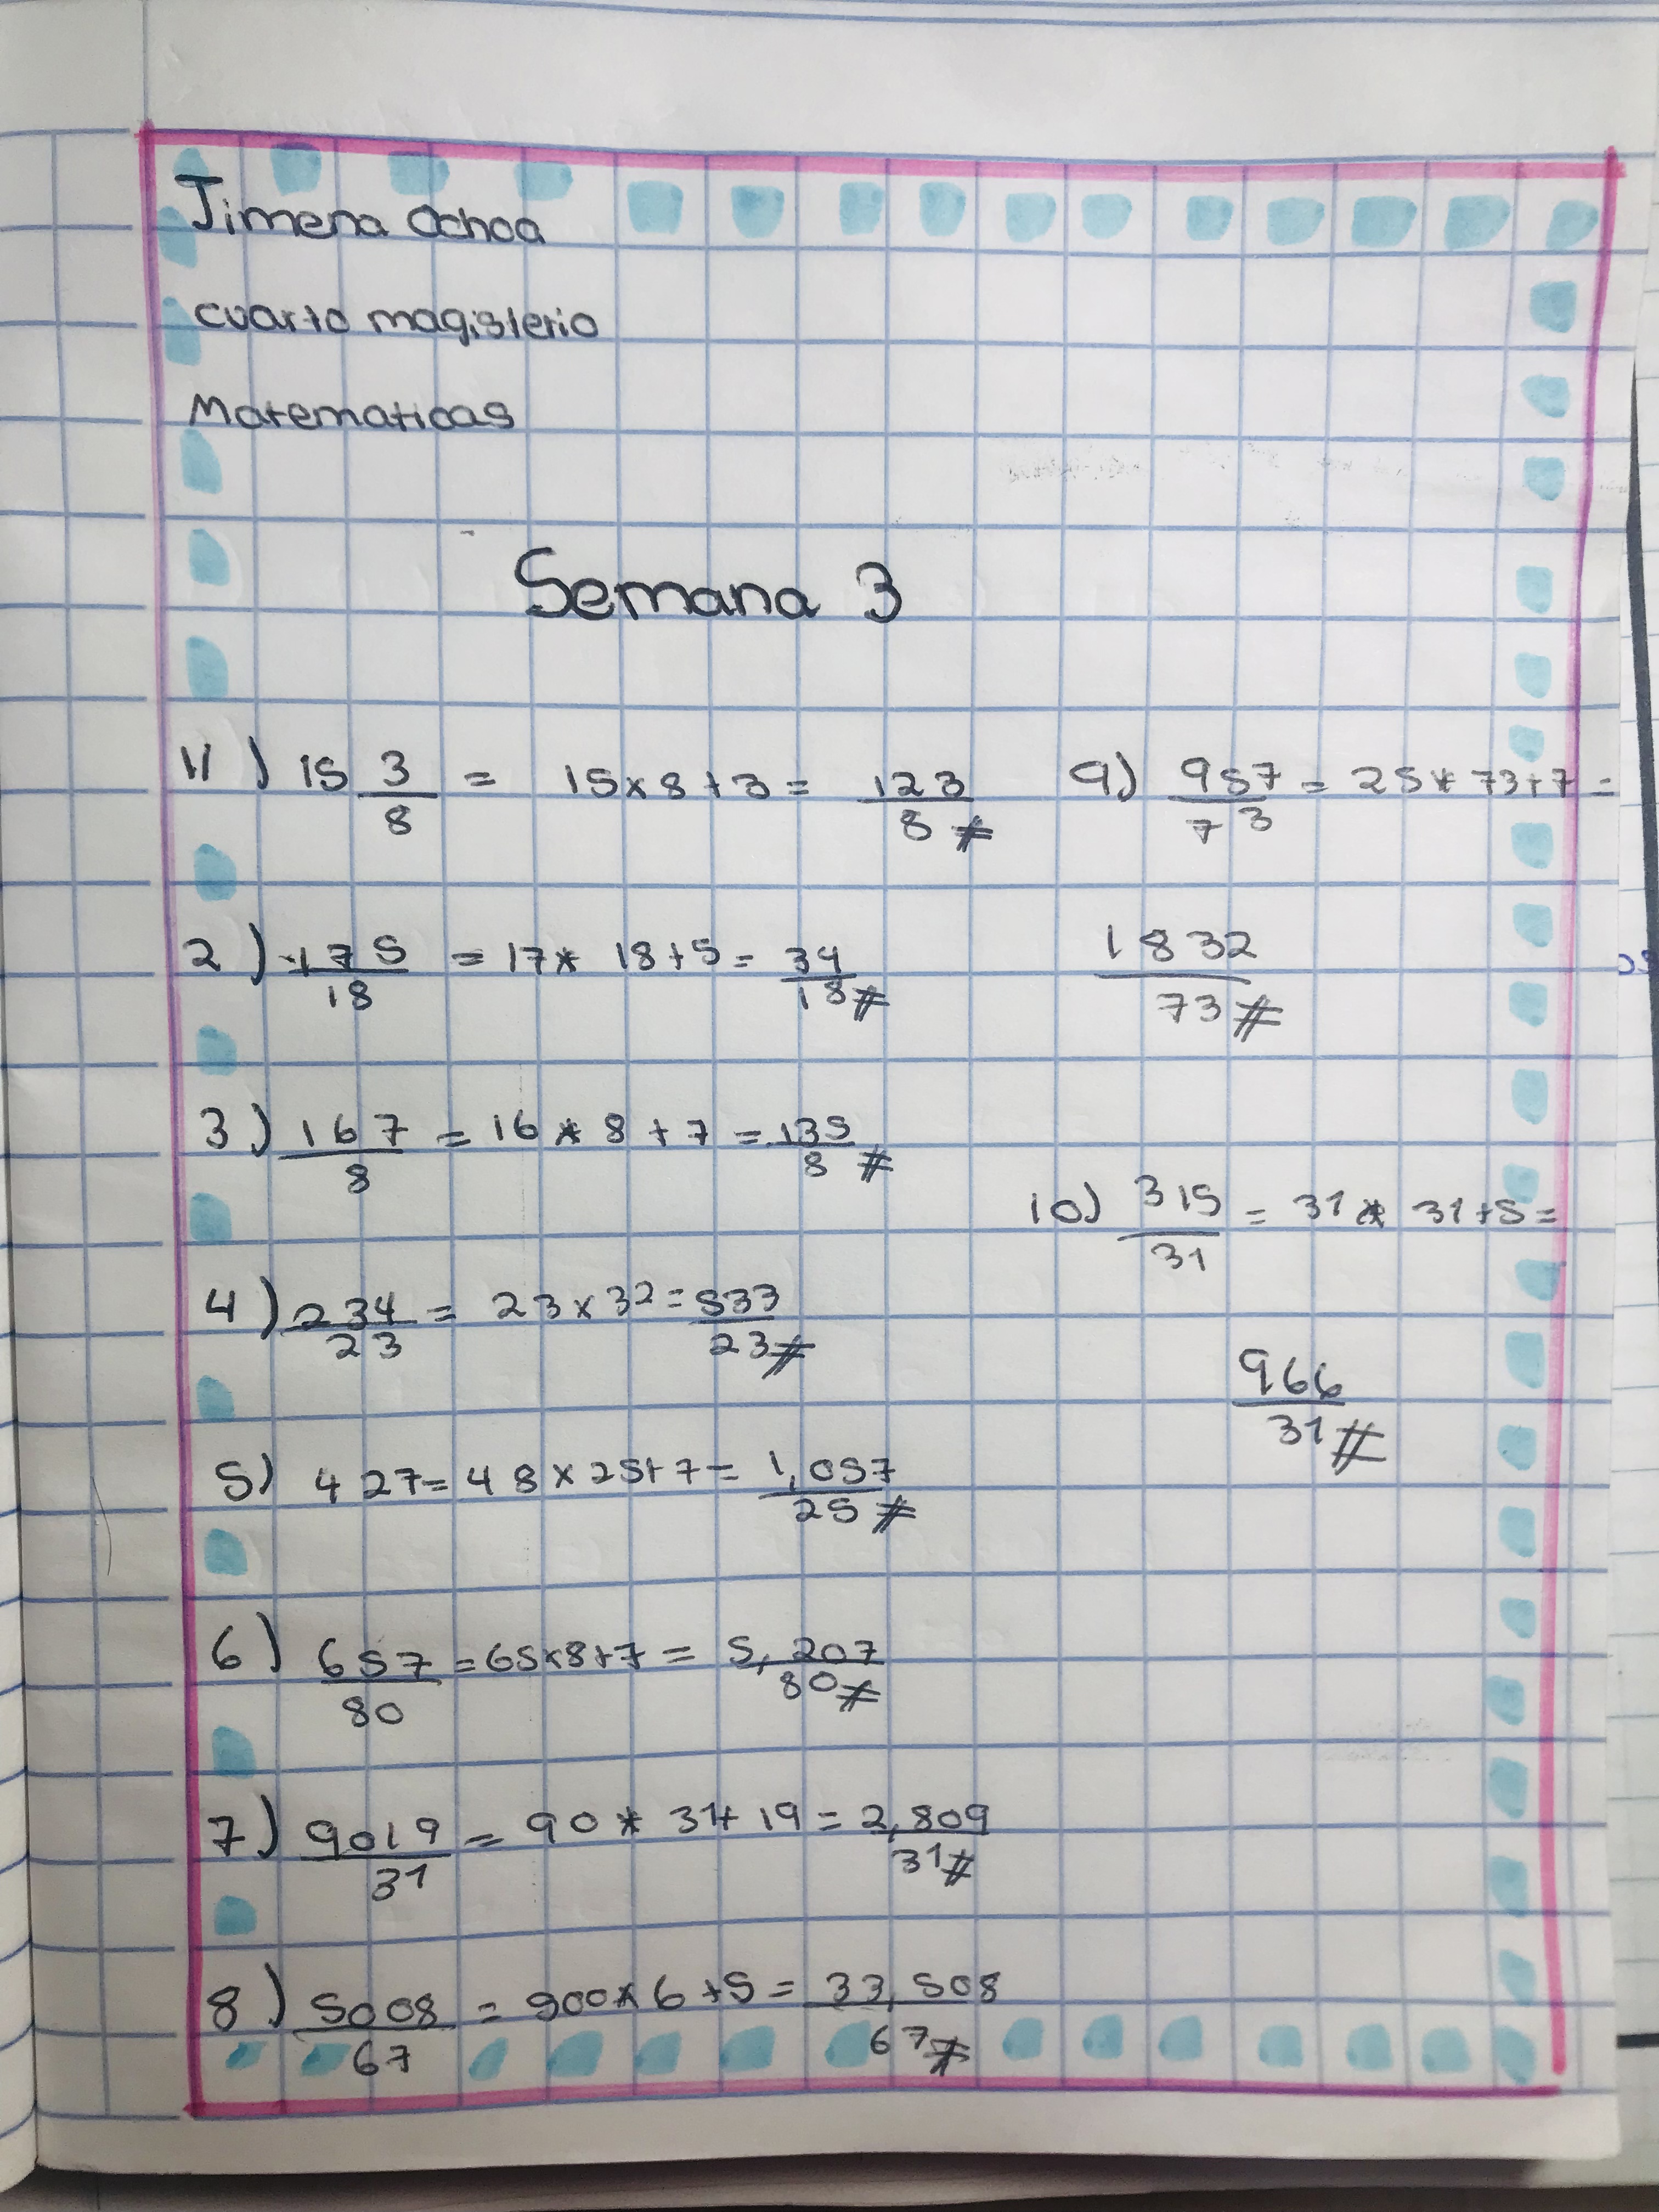 Jimena Ochoa
cuarto magisterio
Matematicas
Semana 3
11) 15 3/8 = 15x8+3= 123/8 #
2) 175/18 = 17* 18+5= 34/18 #
3) 167/8 = 16*8+7 = 135/8 #
4) 234/23 = 23x32= 533/23 #
5) 427= 48x25+7= 1,057/25 #
6) 657/80 =65x8+7= 5,207/80 #
7) 9019/31 = 90* 31+19=2,809/31 #
8) 5008/67 = 900*6+5= 33,508/67 #
9) 957/73 = 25*73+7 =
1832/73 #
10) 315/31 = 31* 31+5=
966/31 #